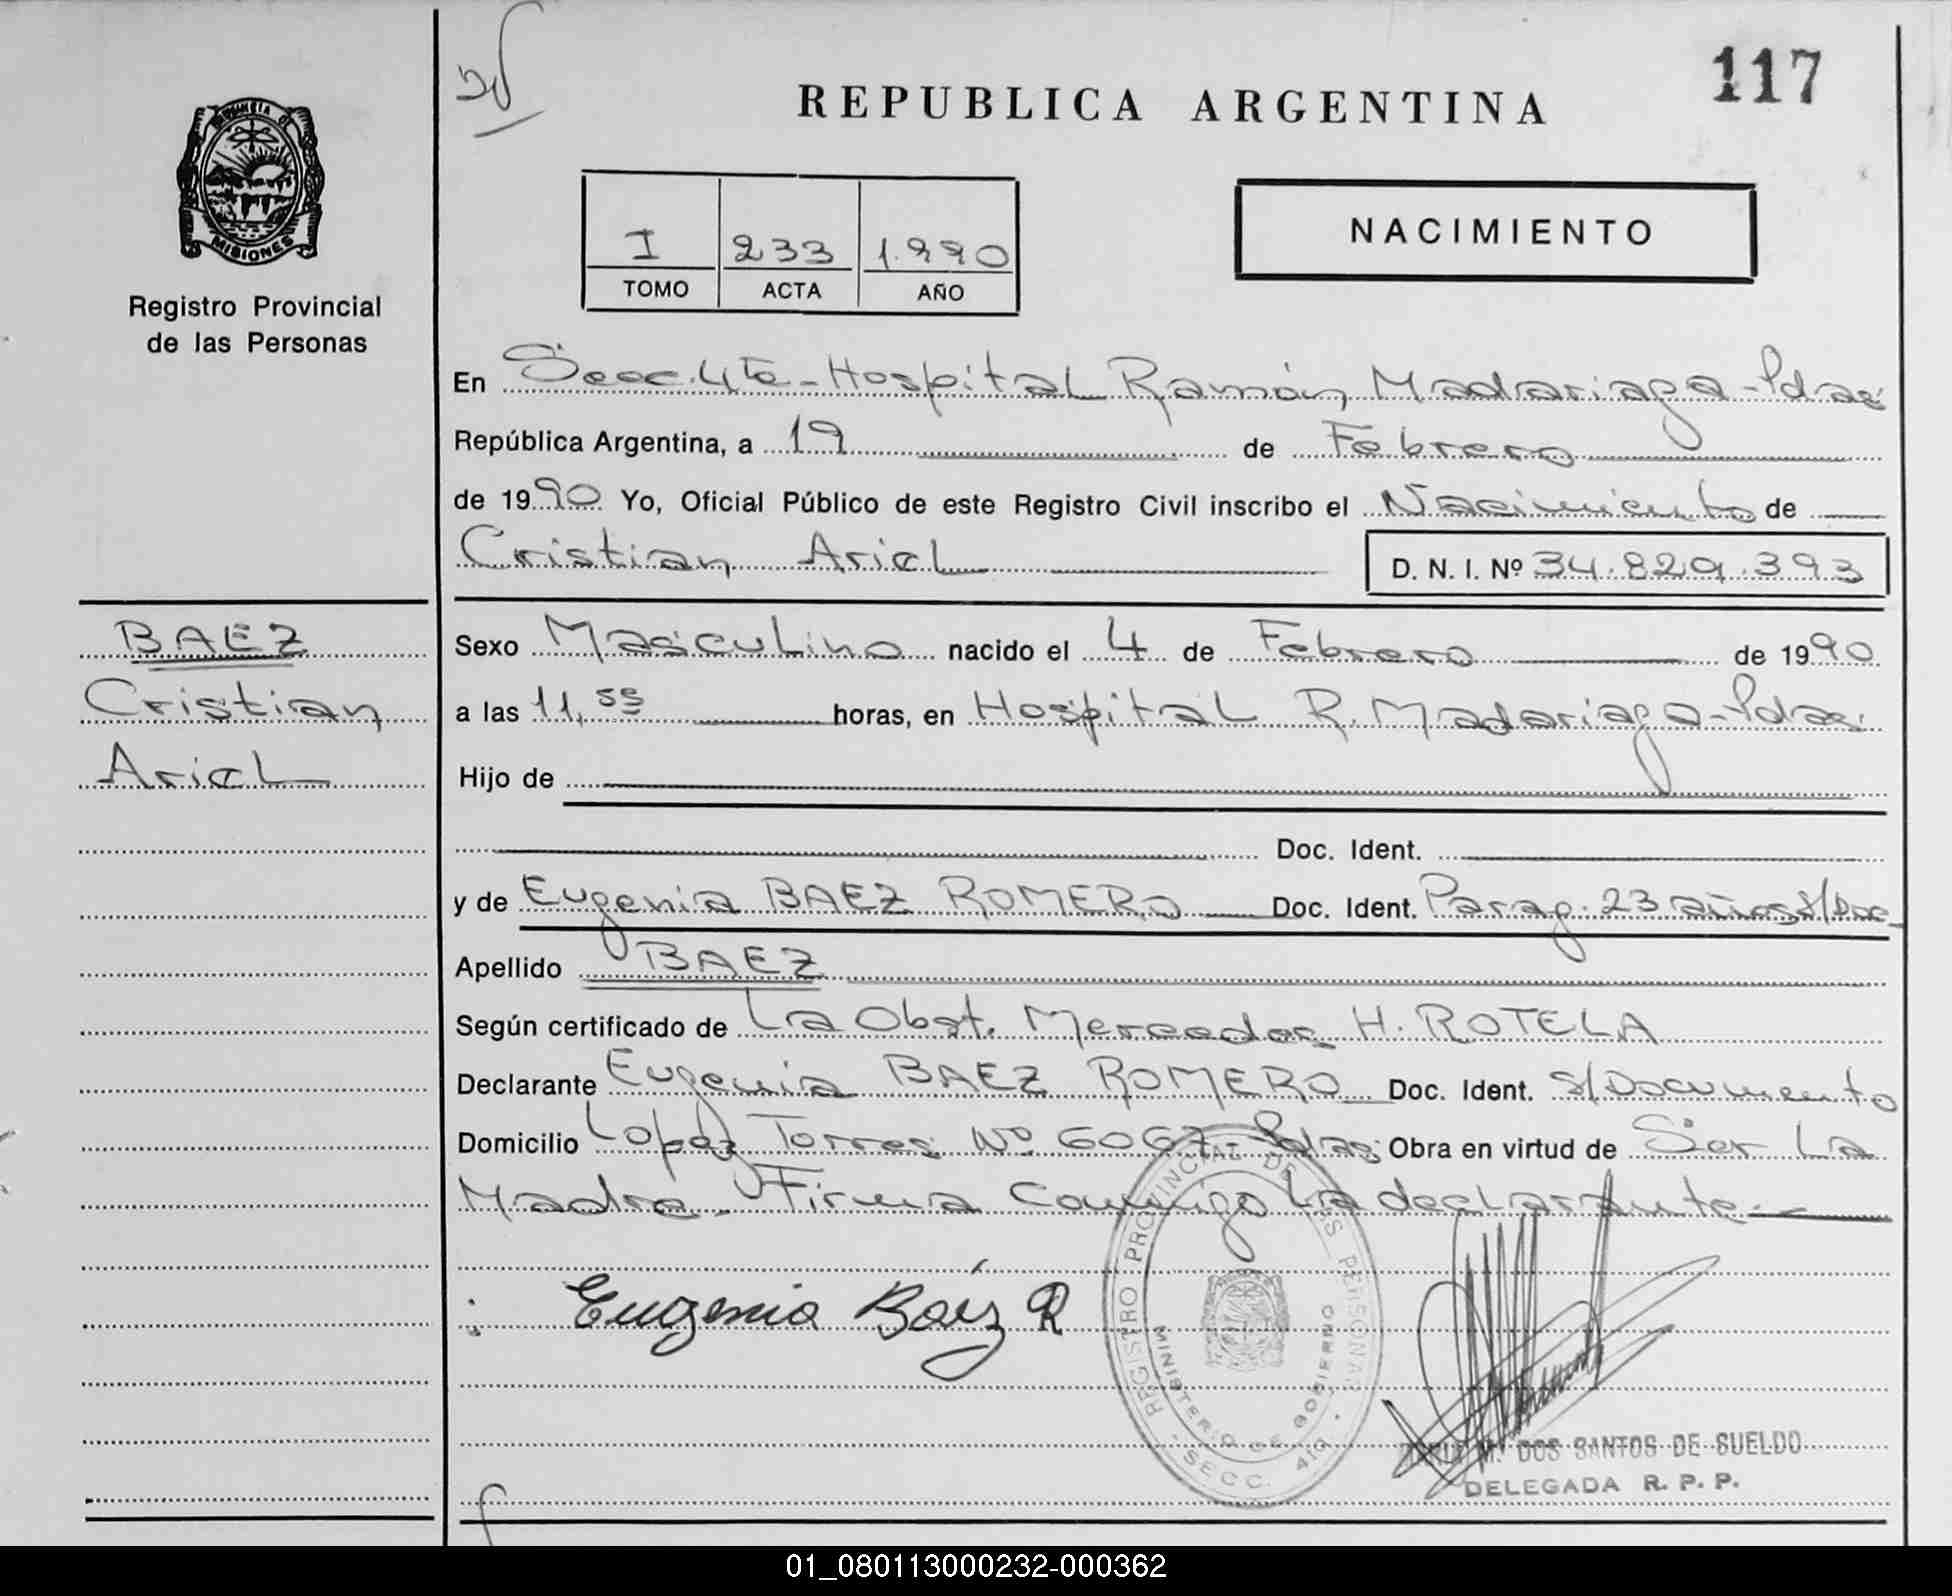 117
REPUBLICA ARGENTINA
PROVINCIA D
MISIONES
Registro Provincial
de las Personas
NACIMIENTO
I 233 1.990
TOMO ACTA AÑO
En Secc. 4ta - Hospital Ramón Madariaga - Pdas
República Argentina, a 19 de Febrero
de 1990 Yo, Oficial Público de este Registro Civil inscribo el Nacimiento de
Cristian Ariel D. N. I. Nº 34.829.393
BAEZ
Cristian
Ariel
Sexo Masculino nacido el 4 de Febrero de 1990
a las 11,55 horas, en Hospital R. Madariaga - Pdas.
Hijo de
Doc. Ident.
y de Eugenia BAEZ ROMERO Doc. Ident. Parag. 23 años S/Doc
Apellido BAEZ
Según certificado de La Obst. Mercedes H. ROTELA
Declarante Eugenia BAEZ ROMERO Doc. Ident. S/Documento
Domicilio Lopez Torres Nº 6067 - Pdas Obra en virtud de Ser La
Madre. Firma Conmigo La declarante.-
Eugenia Baéz R
REGISTRO PROVINCIAL DE LAS PERSONAS
MINISTERIO DE GOBIERNO
- SECC. 4ta. -
M. DOS SANTOS DE SUELDO
DELEGADA R. P. P.
01_080113000232-000362